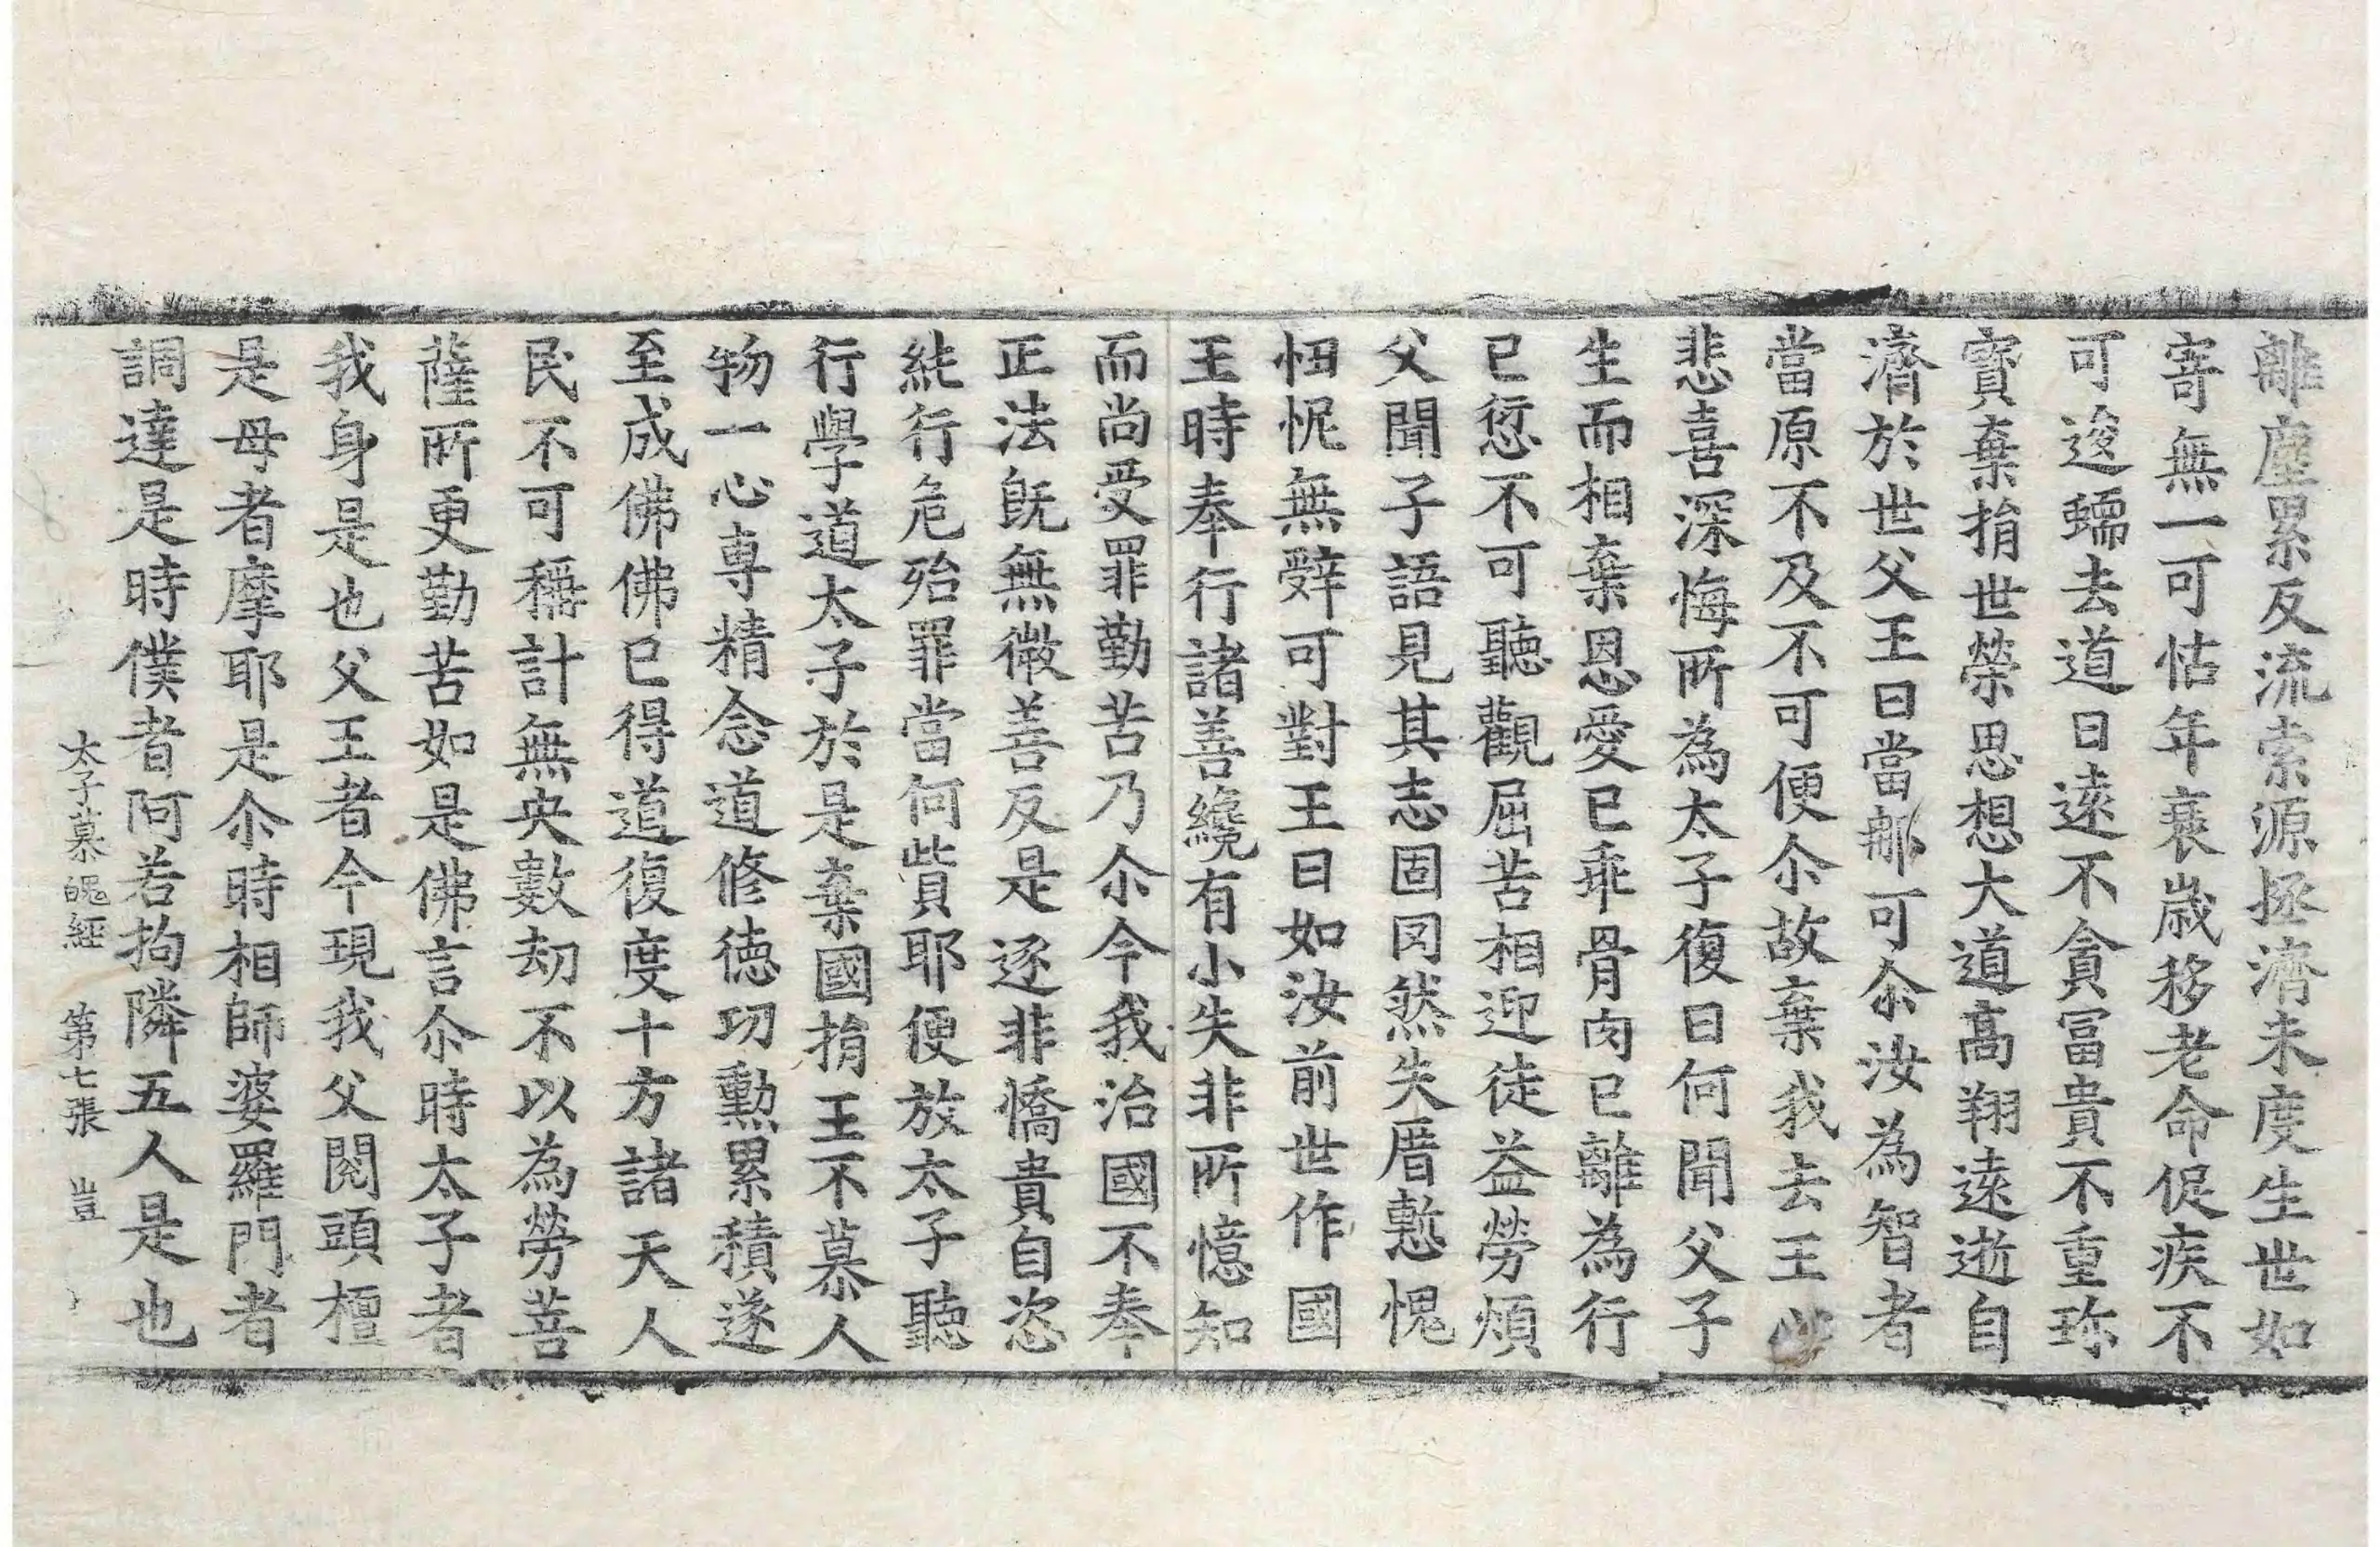 離塵累反流索源拯濟未度生世如
寄無一可怙年衰歳移老命促疾不
可逡蠕去道日逺不貪冨貴不重珎
寳棄捐世榮思想大道髙翔逺逝自
濟於世父王曰當那可尒汝為智者
當原不及不可便尒故棄我去王
悲喜深悔所為太子復曰何聞父子
生而相棄恩愛已乖骨肉已離為行
已愆不可聽觀屈苦相迎徒益勞煩
父聞子語見其志固罔然失厝慙愧
忸怩無辤可對王曰如汝前世作國
王時奉行諸善纔有小失非所憶知
而尚受罪勤苦乃尒今我治國不奉
正法旣無微善反是逐非憍貴自恣
純行危殆罪當何貲耶便放太子聽
行學道太子於是棄國捐王不慕人
物一心専精念道修徳功勲累積遂
至成佛佛已得道復度十方諸天人
民不可稱計無央數劫不以為勞菩
薩所更勤苦如是佛言尒時太子者
我身是也父王者今現我父閱頭檀
是母者摩耶是尒時相師婆羅門者
調達是時僕者阿若拘隣五人是也
太子慕魄經 第七張 豈